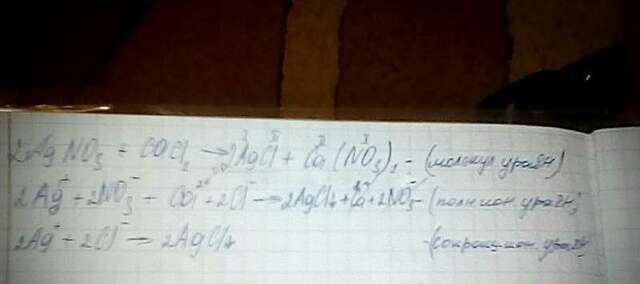 2AgNO3 + CaCl2 → 2AgCl + Ca(NO3)2 - (молекул. уравн)
2Ag + 2NO3⁻ + Ca²⁺ + 2Cl⁻ → 2AgCl↓ + Ca + 2NO3⁻ - (полн ион. уравн)
2Ag + 2Cl⁻ → 2AgCl↓ - (сокращ. ион. уравн)